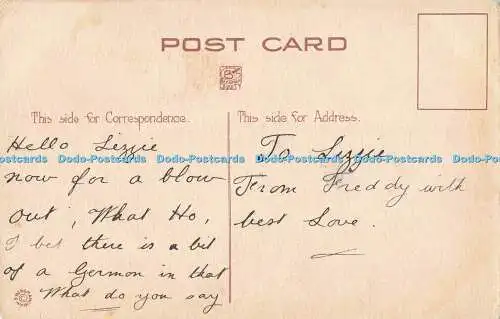 POST CARD
This side for Correspondence.
Hello Lizzie
now for a blow
out, What Ho,
I bet there is a bit
of a Germon in that
What do you say
This side for Address.
To Lizzie
From Freddy with
best Love.
Postcards Dodo-Postcards Dodo-Postcards Dodo-Postcards Dodo-Postcards Dodo-Postcards